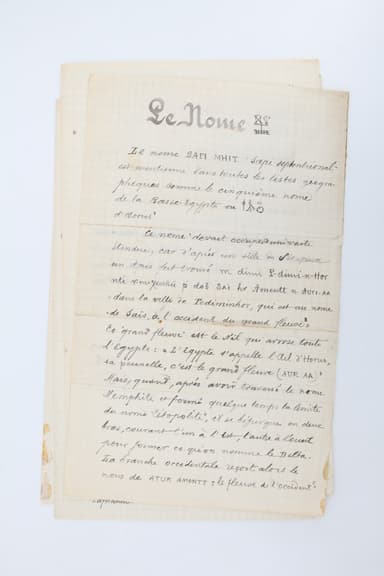 Le Nome
Le nome SAPI MHIT Sapi septentrional
est mentionné dans toutes les listes géogra-
phiques comme le cinquième nome
de la Basse-Egypte ou
d'Horus
Ce nome devait occuper une vaste
étendue, car d'après un stèle du
un était fut trouvé m dimi P-dimi-n-Hor
dans la ville de Pediminhor, qui est au nome
de Saïs, à l'occident du grand fleuve
Ce grand fleuve est le Nil qui arrose toute
l'Egypte: "L'Egypte s'appelle l'Œil d'Horus,
sa prunelle, c'est le grand fleuve (AUR AA)
Mais, quand, après avoir traversé le nome
Memphite et formé quelque temps la limite
du nome létopolite, il se bifurque en deux
bras, courant l'un à l'est, l'autre à l'ouest
pour former ce qu'on nomme le Delta.
La branche occidentale reçoit alors le
nom de ATUR AMENTI: le fleuve de l'occident